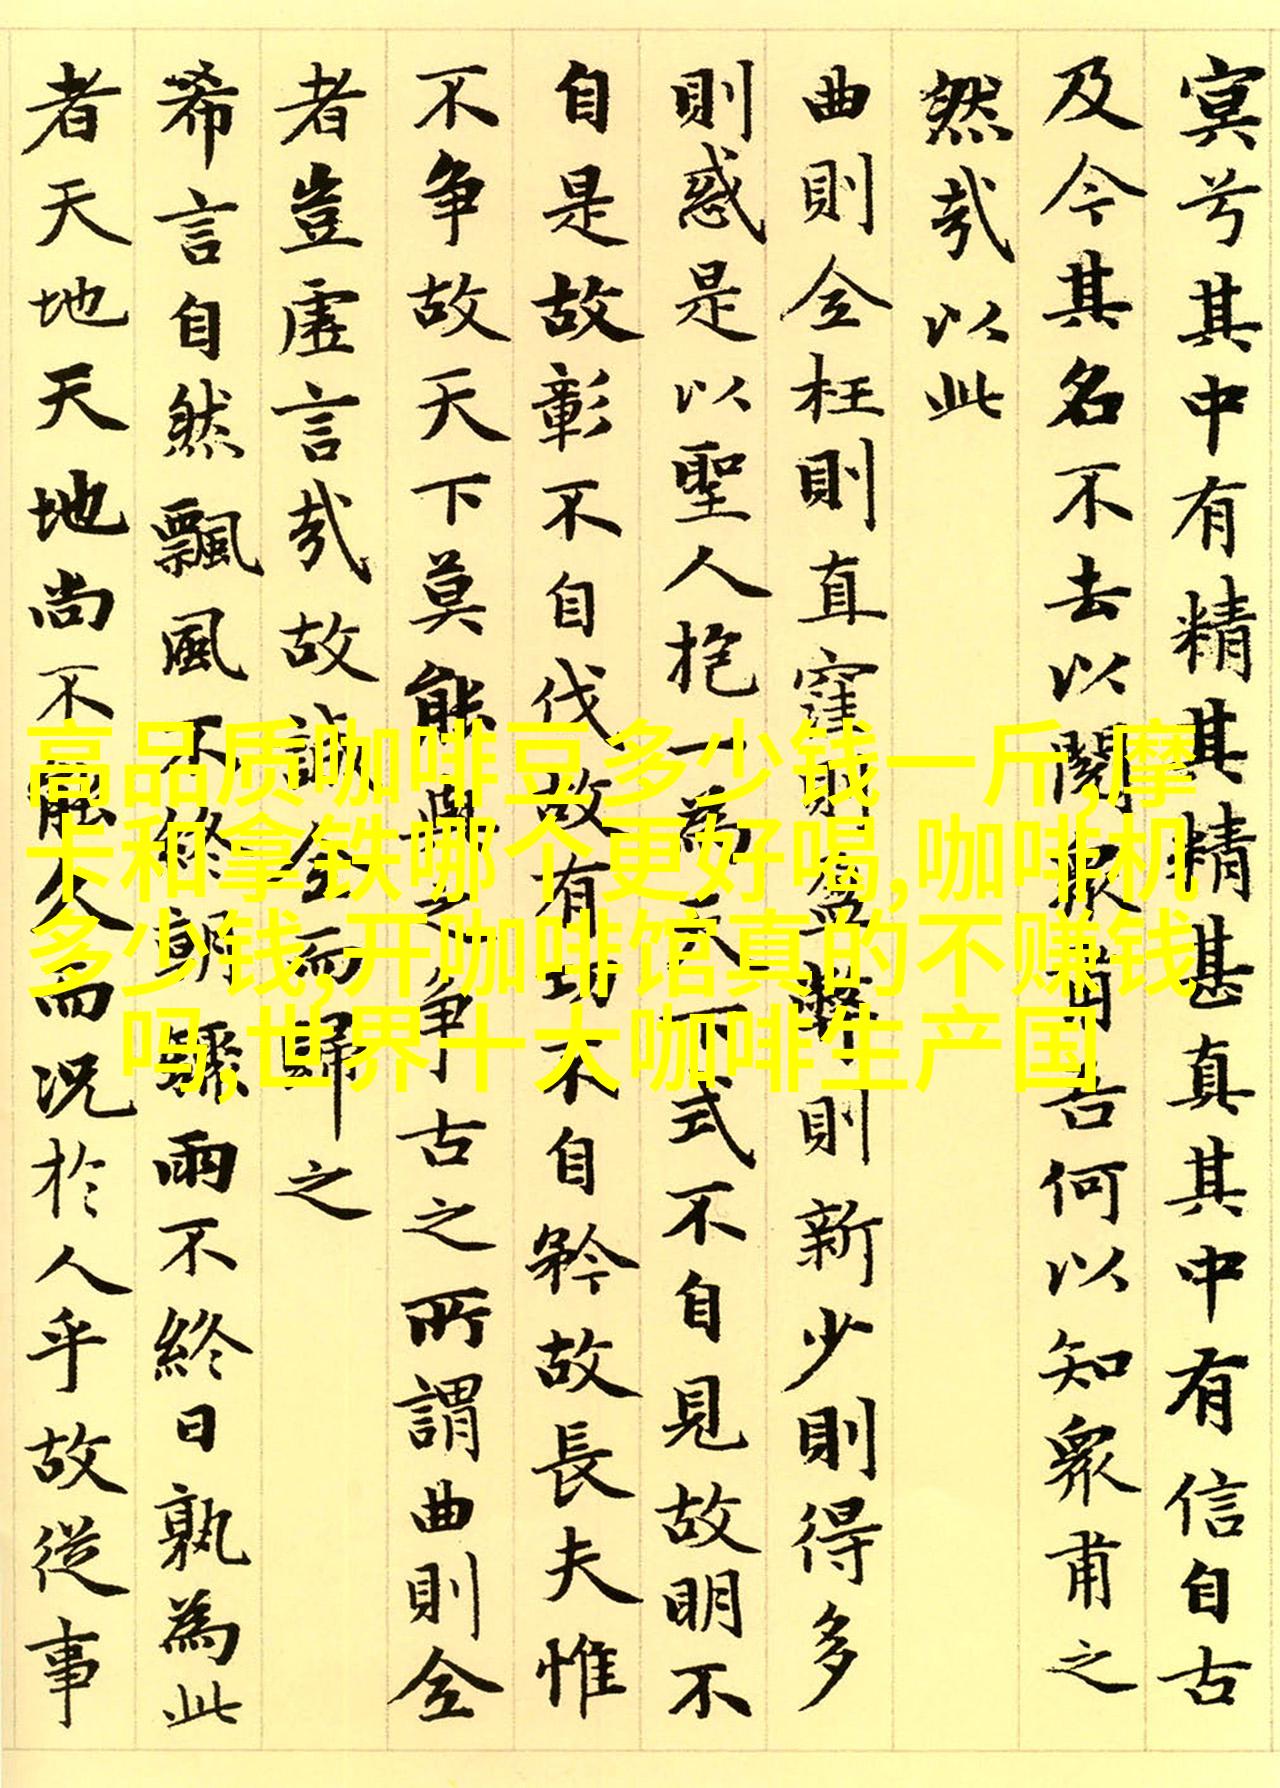 冥兮其中有精其精甚真其中有信自古
及今其名不去以閱衆甫吾何以知衆甫之
然哉以此
曲則全枉則直窪則盈弊則新少則得多
則惑是以聖人抱一為天下式不自見故明不
自是故彰不自伐故有功不自矜故長夫惟
不争故天下莫能與之争古之所謂曲則全
者豈虛言哉故誠全而歸之
希言自然飄風不終朝驟雨不終日孰為此
者天地天地尚不能久而況於人乎故從事
高品质咖啡豆多少钱一斤,摩
卡和拿铁哪个更好喝,咖啡机
多少钱,开咖啡馆真的不赚钱
吗,世界十大咖啡生产国